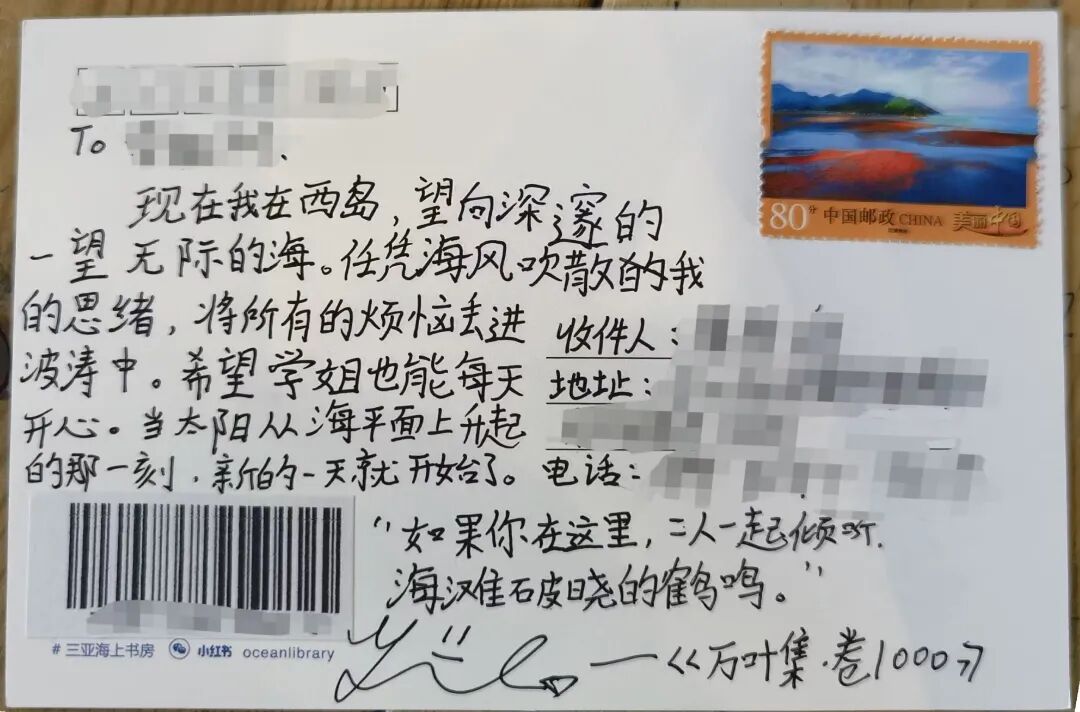 To
80分 中国邮政 CHINA 美丽中国
现在我在西岛，望向深邃的
一望无际的海。任凭海风吹散的我
的思绪，将所有的烦恼丢进
波涛中。希望学姐也能每天
开心。当太阳从海平面上升起
的那一刻，新的一天就开始了。
收件人：
地址：
电话：
“如果你在这里，二人一起倾听.
海滩破晓的鹤鸣。”
——《万叶集·卷1000》
#三亚海上书房 小红书 oceanlibrary